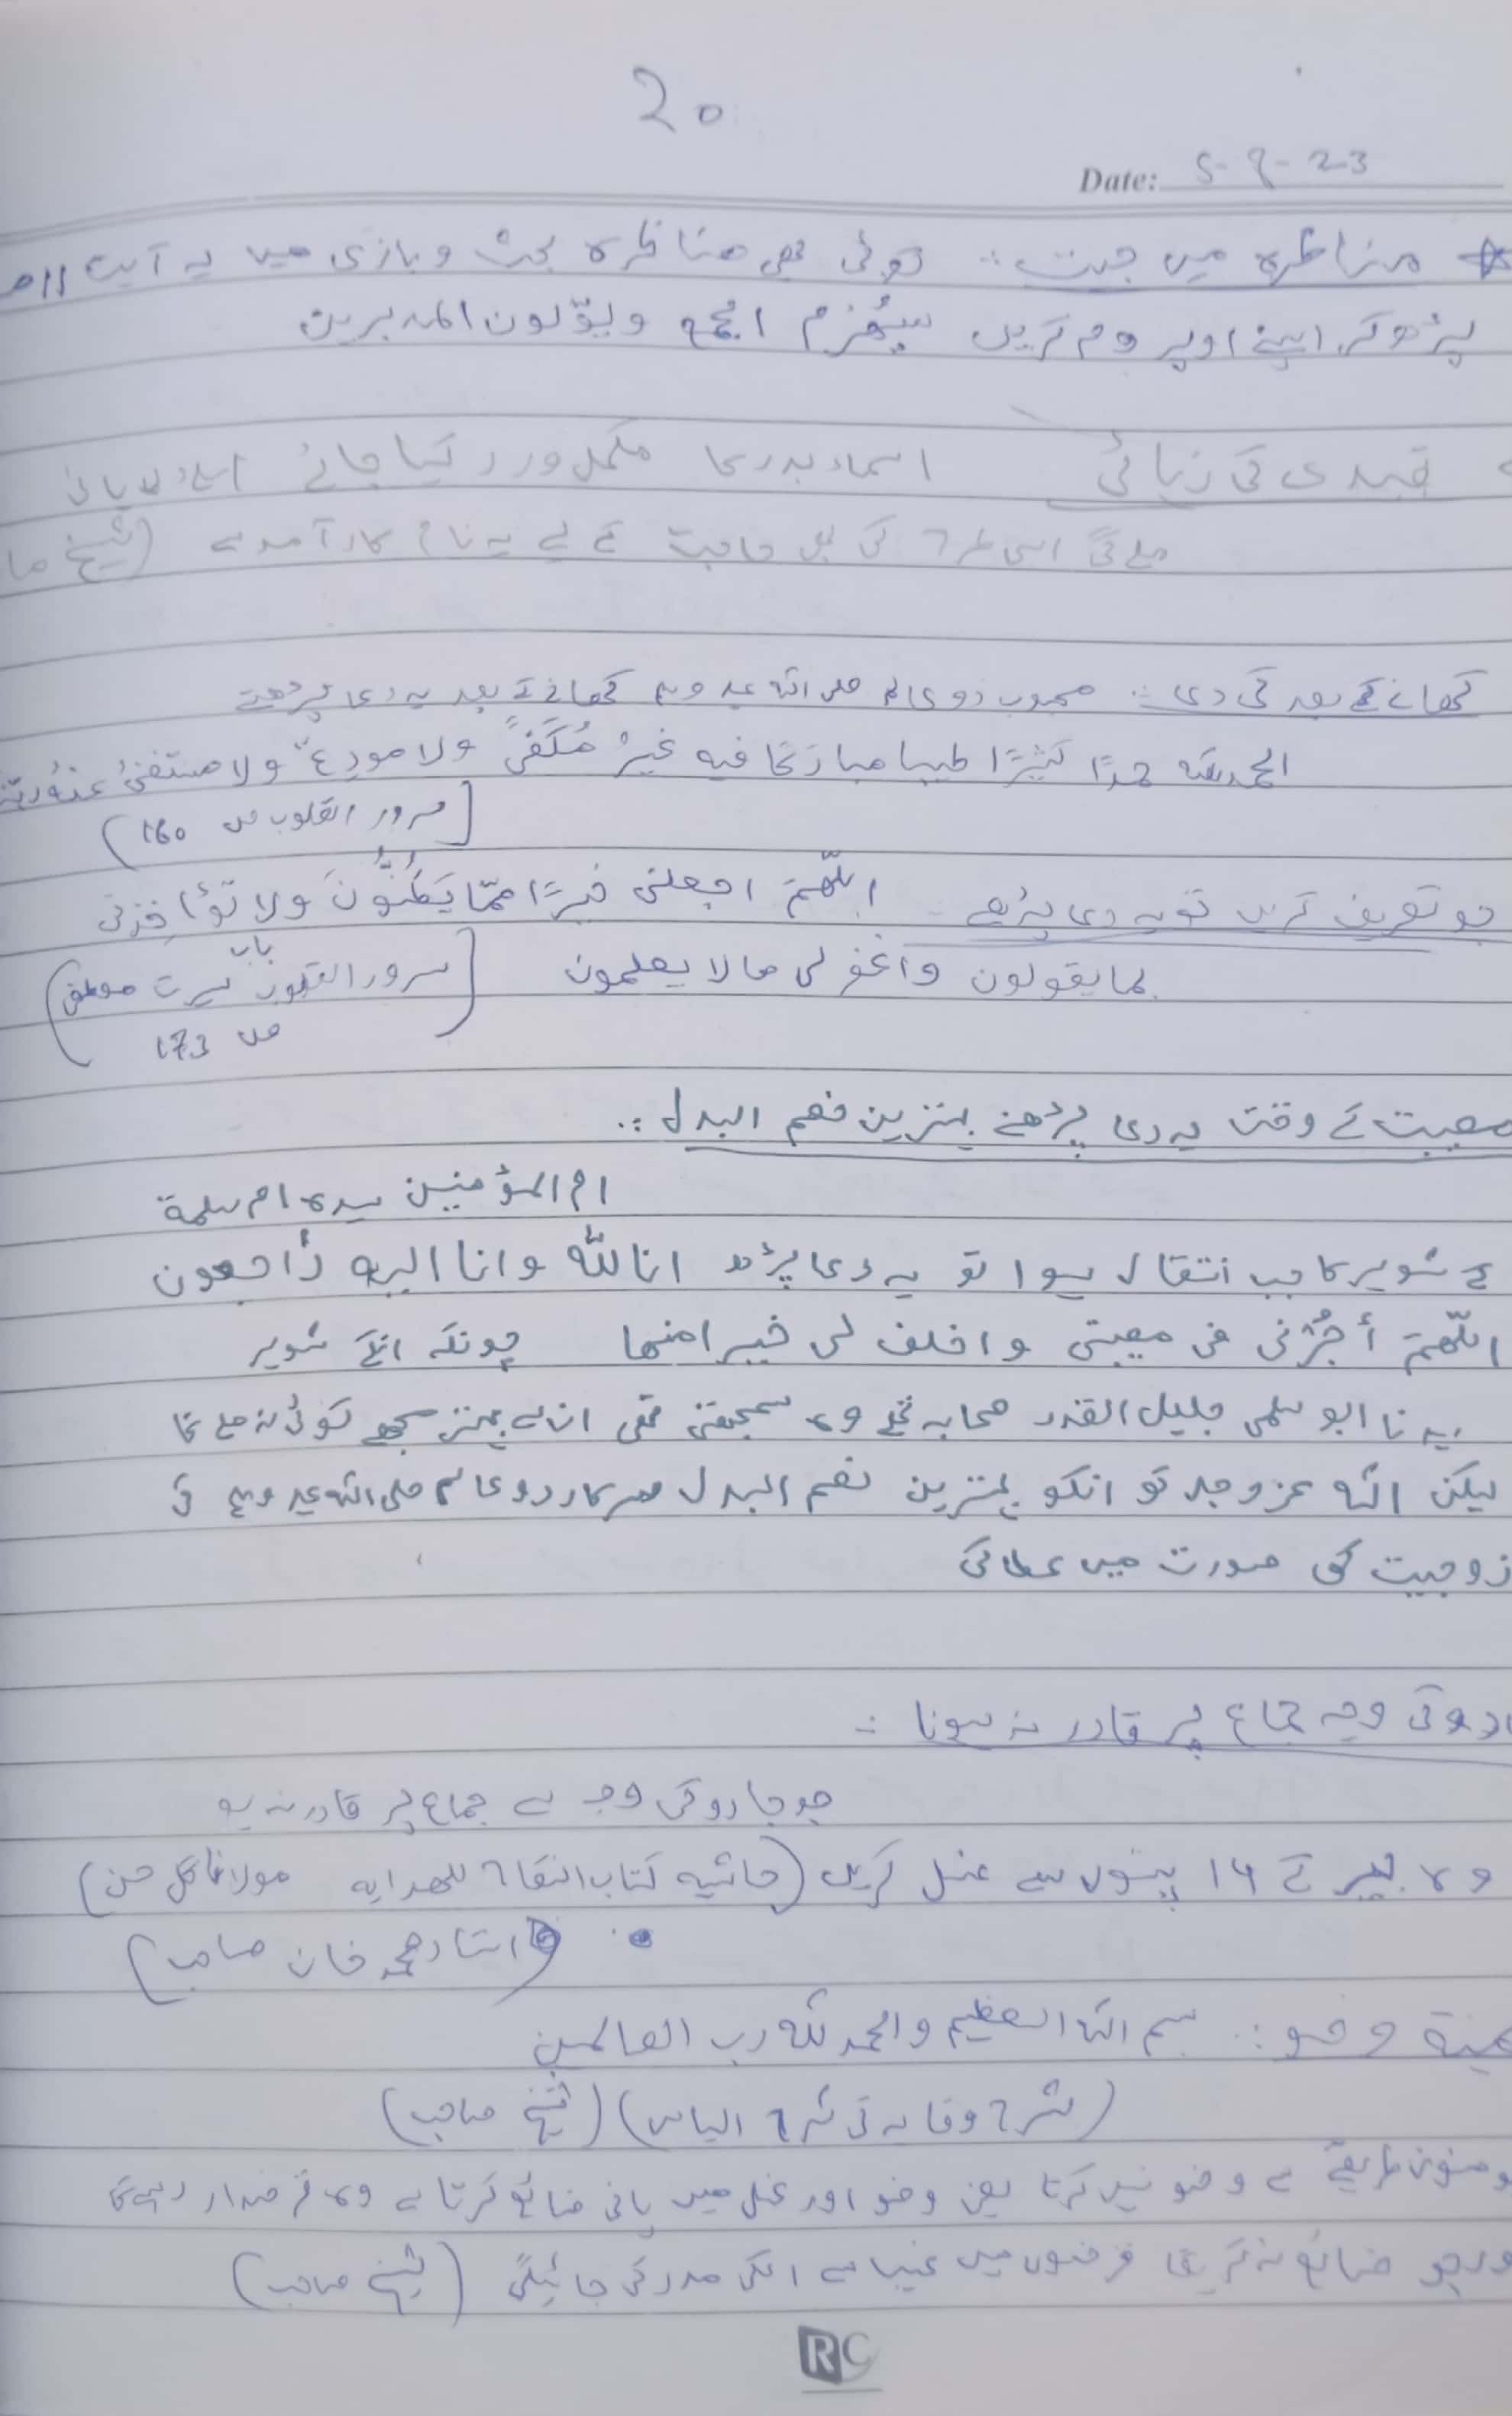 20
Date: 5-9-23
مناظرہ میں جیت :. کوئی بھی مناظرہ بحث و بازی میں یہ آیت 11
پڑھ کر اپنے اوپر دم کریں سیُھزم الجمع ویولّون المدبرین
قیدی کی رہائی اسماء بدر کا مکمل ورد کیا جائے رہائی
ملے گی اسی طرح کی بھی حاجت کے لیے یہ نام کارآمد ہے (شیخ صا
کھانے کے بعد کی دعی :. محبوب دو عالم صلی اللہ علیہ وسلم کھانے کے بعد یہ دعی پڑھتے
الحمدللہ حمدًا کثیرًا طیبا مبارکا فیه غیرُ مُکَفیً ولا مودعٍ ولا مستغنیً عنهُ ربنا
[سرور القلوب ص 160)
جو تعریف کریں تو یہ دعی پڑھے اللّٰھمّ اجعلنی خیرًا ممّا یَظُنُّونَ ولا تؤاخِذنی
بما یقولون واغفر لی ما لا یعلمون [سرور القلوب باب سیرت مصطفی
ص 173)
مصیبت کے وقت یہ دعی پڑھنے بہترین نعم البدل :.
ام المؤمنین سیدہ ام سلمة
کے شوہر کا جب انتقال ہوا تو یہ دعا پڑھ انا للّٰہ وانا الیہ راجعون
اللّٰھمّ أجُرْنی فی مصیبتی واخلف لی خیرا منھا چونکہ انکے شوہر
سیدنا ابو سلمی جلیل القدر صحابہ تھے وہ سمجھتی تھی ان سے بہتر مجھے کوئی نہ ملے گا
لیکن اللہ عزوجل تو انکو بہترین نعم البدل سرکار دو عالم صلی اللہ علیہ وسلم کی
زوجیت کی صورت میں عطا کی
ادو کی وجہ جماع پر قادر نہ ہونا :.
جو جادو کی وجہ سے جماع پر قادر نہ ہو
وہ بیر کے 14 پتوں سے غسل کریں (حاشیہ کتاب النکاح للھدایہ مولانا گل حسن)
(استاد محمد خان صاحب)
وضو :. بسم اللہ العظیم والحمد للّٰہ رب العالمین
(شرح وقایہ کی شرح الیاس) (شیخ صاحب)
مسنون طریقے سے وضو نہیں کرتا یعنی وضو اور غسل میں پانی ضائع کرتا ہے وہ قرضدار رہے گا
ورجو ضائع نہ کریگا قرضوں میں غیب سے اسکی مدد کی جائیگی (شیخ صاحب)
RC